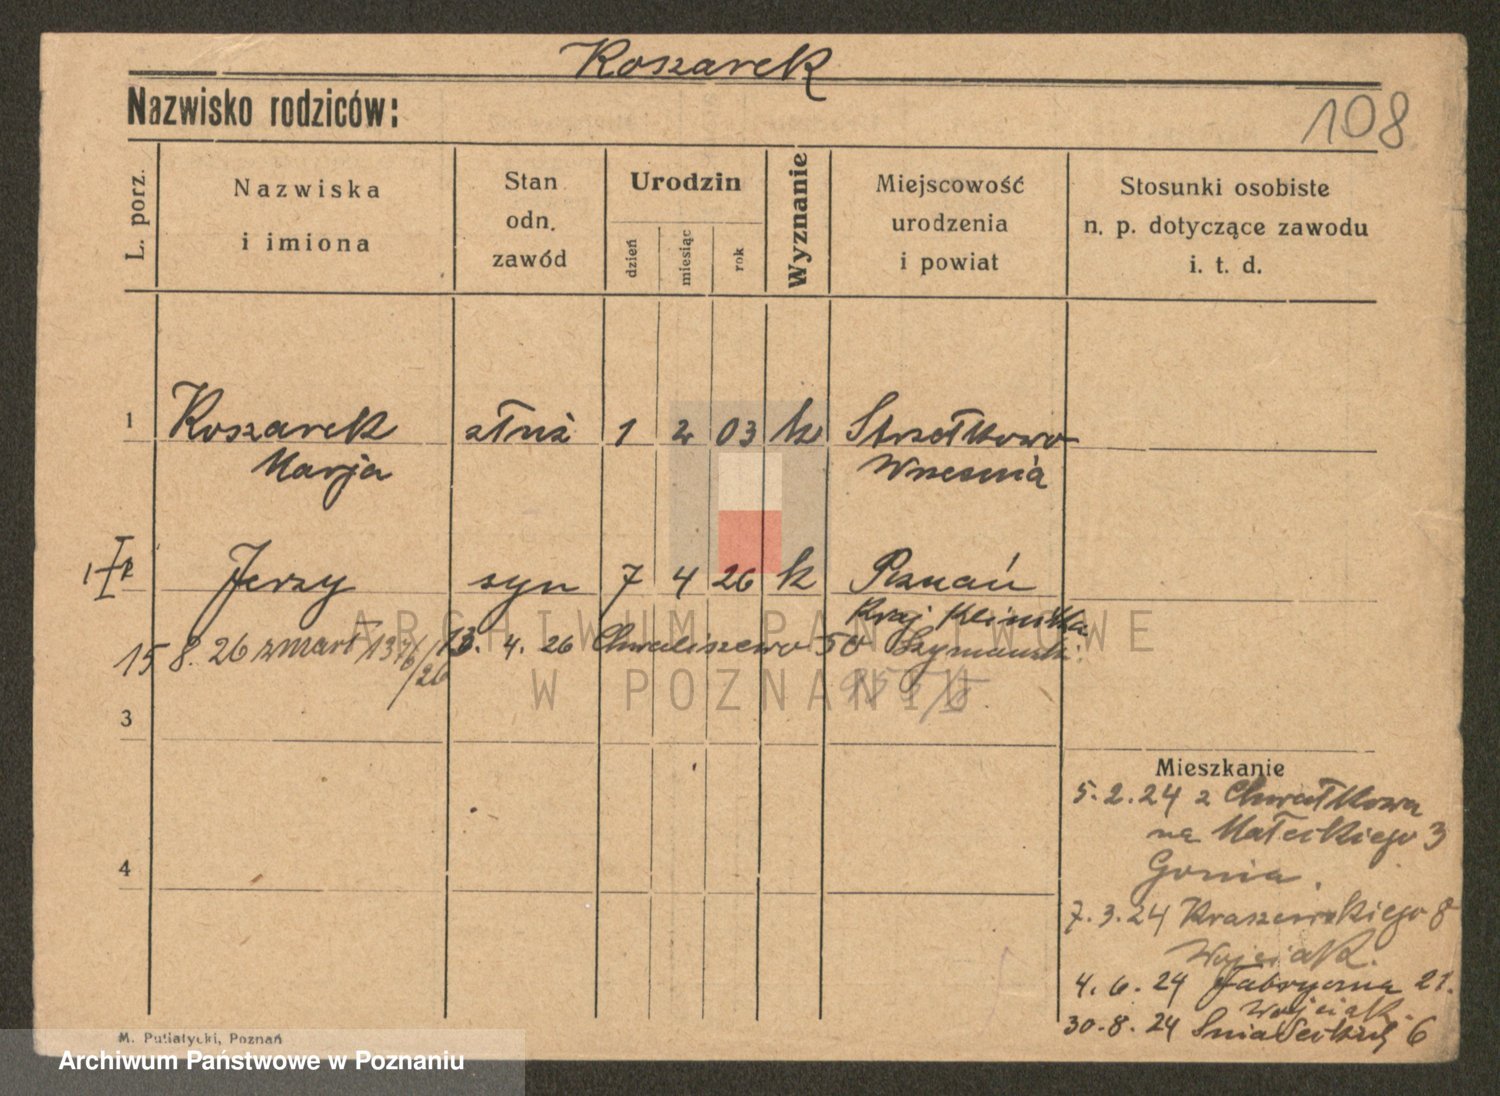 Koszarek
Nazwisko rodziców:
108
L. porz.
Nazwiska
i imiona
Stan
odn.
zawód
Urodzin
dzień
miesiąc
rok
Wyznanie
Miejscowość
urodzenia
i powiat
Stosunki osobiste
n. p. dotyczące zawodu
i. t. d.
1 Koszarek służ 1 2 03 k Strzałkowo
Marja Wrzesnia
Jerzy syn 7 4 26 k Poznań
Kraj Klinika
15 8. 26 zmarł 13. 4. 26 Chwaliszewo 50 Szymański
3
4
Mieszkanie
5.2.24 z Chwałkowa
na Małeckiego 3
Gonia.
7.3.24 Kraszewskiego 8
Wojciak.
4.6.24 Fabryczna 21.
Wojciak.
30.8.24 Sniadeckich 6
M. Putiatycki, Poznań
ARCHIWUM PAŃSTWOWE
W POZNANIU
Archiwum Państwowe w Poznaniu